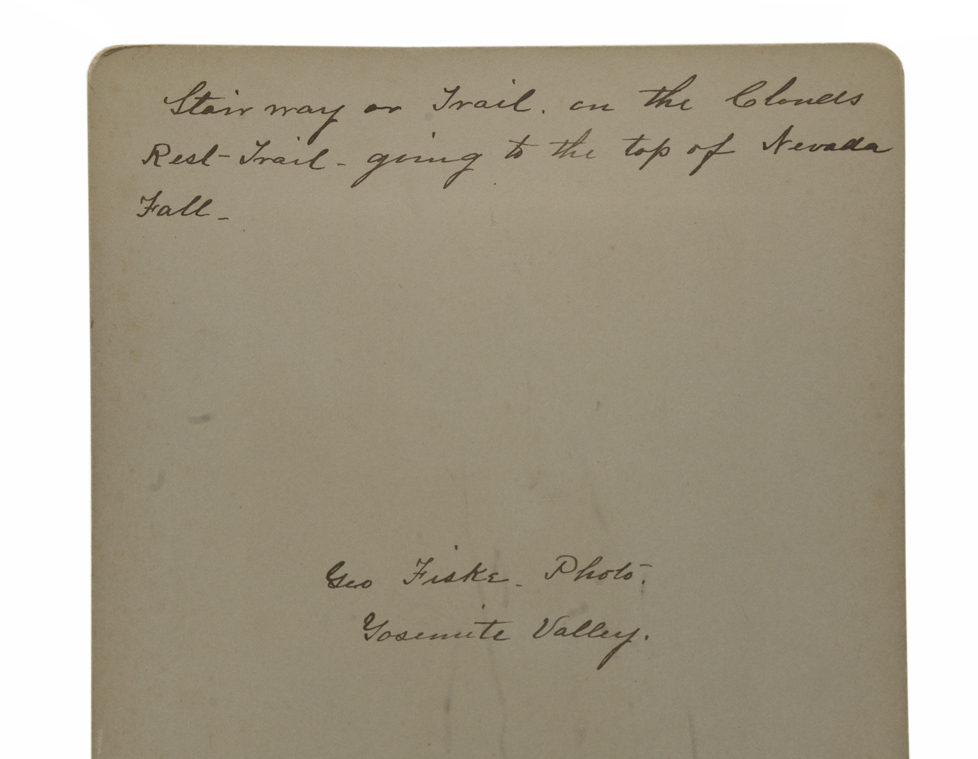 Stairway or Trail. on the Clouds
Rest-Trail - going to the top of Nevada
Fall -
Geo Fiske - Photo.
Yosemite Valley.